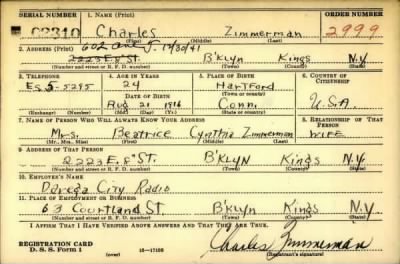 SERIAL NUMBER 1. NAME (Print) ORDER NUMBER
Charles Zimmerman 2999
(First) (Middle) (Last)
2. ADDRESS (Print) 602 Ave J. 12/30/41
2223 E. 8" St. B'klyn Kings N.Y.
(Number and street or R. F. D. number) (Town) (County) (State)
3. TELEPHONE 4. AGE IN YEARS 5. PLACE OF BIRTH 6. COUNTRY OF CITIZENSHIP
ES 5-5295 24 Hartford
DATE OF BIRTH (Town or county)
Aug 21 1916 Conn. U.S.A.
(Exchange) (Number) (Mo.) (Day) (Yr.) (State or country)
7. NAME OF PERSON WHO WILL ALWAYS KNOW YOUR ADDRESS 8. RELATIONSHIP OF THAT PERSON
Mrs. Beatrice Cynthia Zimmerman WIFE
(Mr., Mrs., Miss) (First) (Middle) (Last)
9. ADDRESS OF THAT PERSON
2223 E. 8" St. B'klyn Kings N.Y.
(Number and street or R. F. D. number) (Town) (County) (State)
10. EMPLOYER'S NAME
Davega City Radio
11. PLACE OF EMPLOYMENT OR BUSINESS
63 Courtland St. B'klyn Kings N.Y.
(Number and street or R. F. D. number) (Town) (County) (State)
I AFFIRM THAT I HAVE VERIFIED ABOVE ANSWERS AND THAT THEY ARE TRUE.
REGISTRATION CARD
D. S. S. Form 1 (over) Charles Zimmerman
(Registrant's signature)